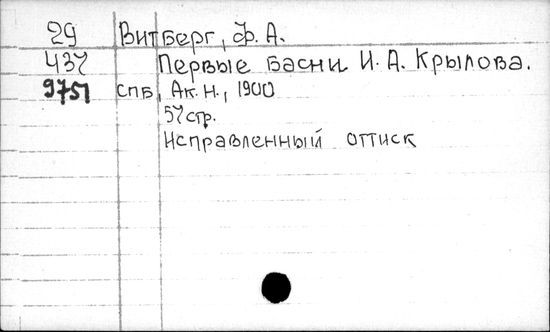 29 Витберг, Ф. А.
437 Первые басни И. А. Крылова.
9751 СПБ, Ак. Н., 1900
57 стр.
Исправленный оттиск